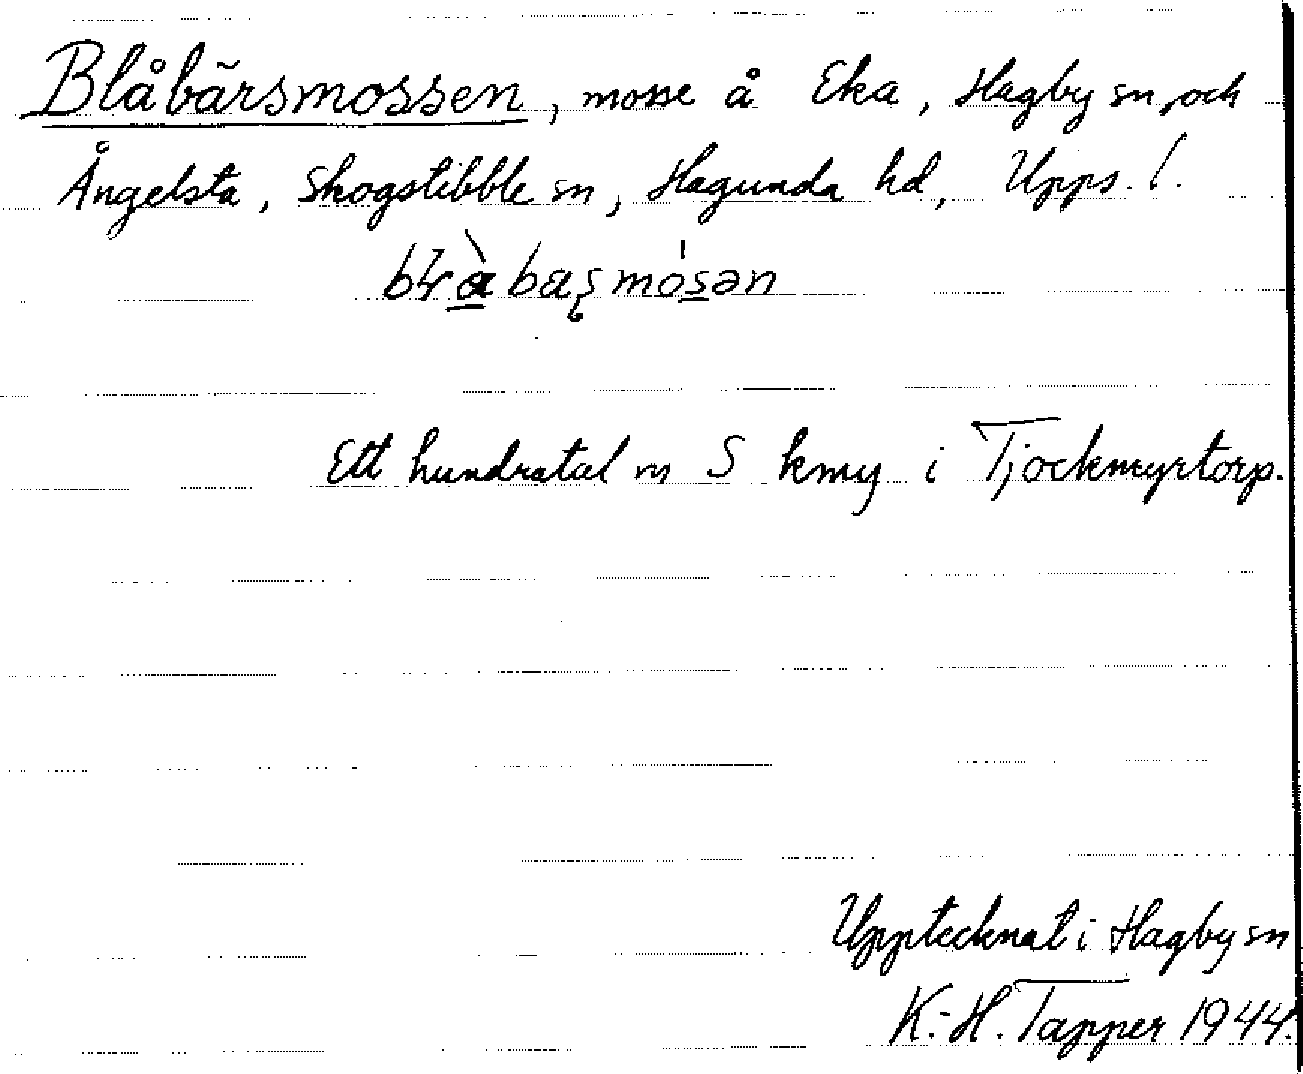 Blåbärsmossen, mosse å Eka, Hagby sn, och
Ängelsta, Skogstibble sn, Hagunda hd, Upps. l.
Ett hundratal m S kmg i Tjockmyrtorp.
Upptecknat i Hagby sn
K.-H. Tapper 1944.